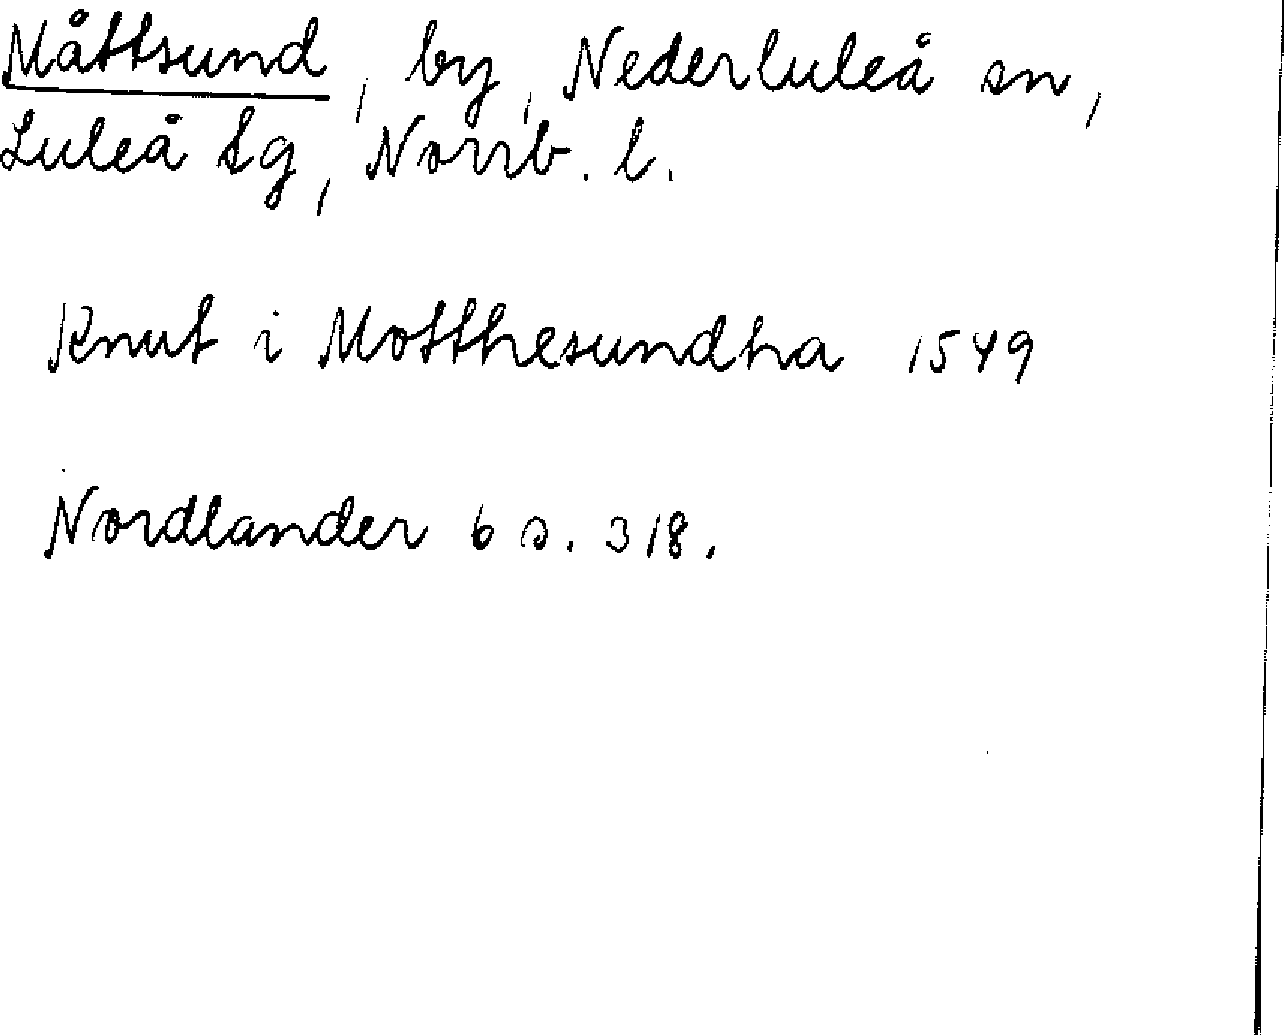 Måttsund, by, Nederluleå sn,
Luleå tg, Norrb. l.
Knut i Motthesundha 1549
Nordlander 6 s. 318.